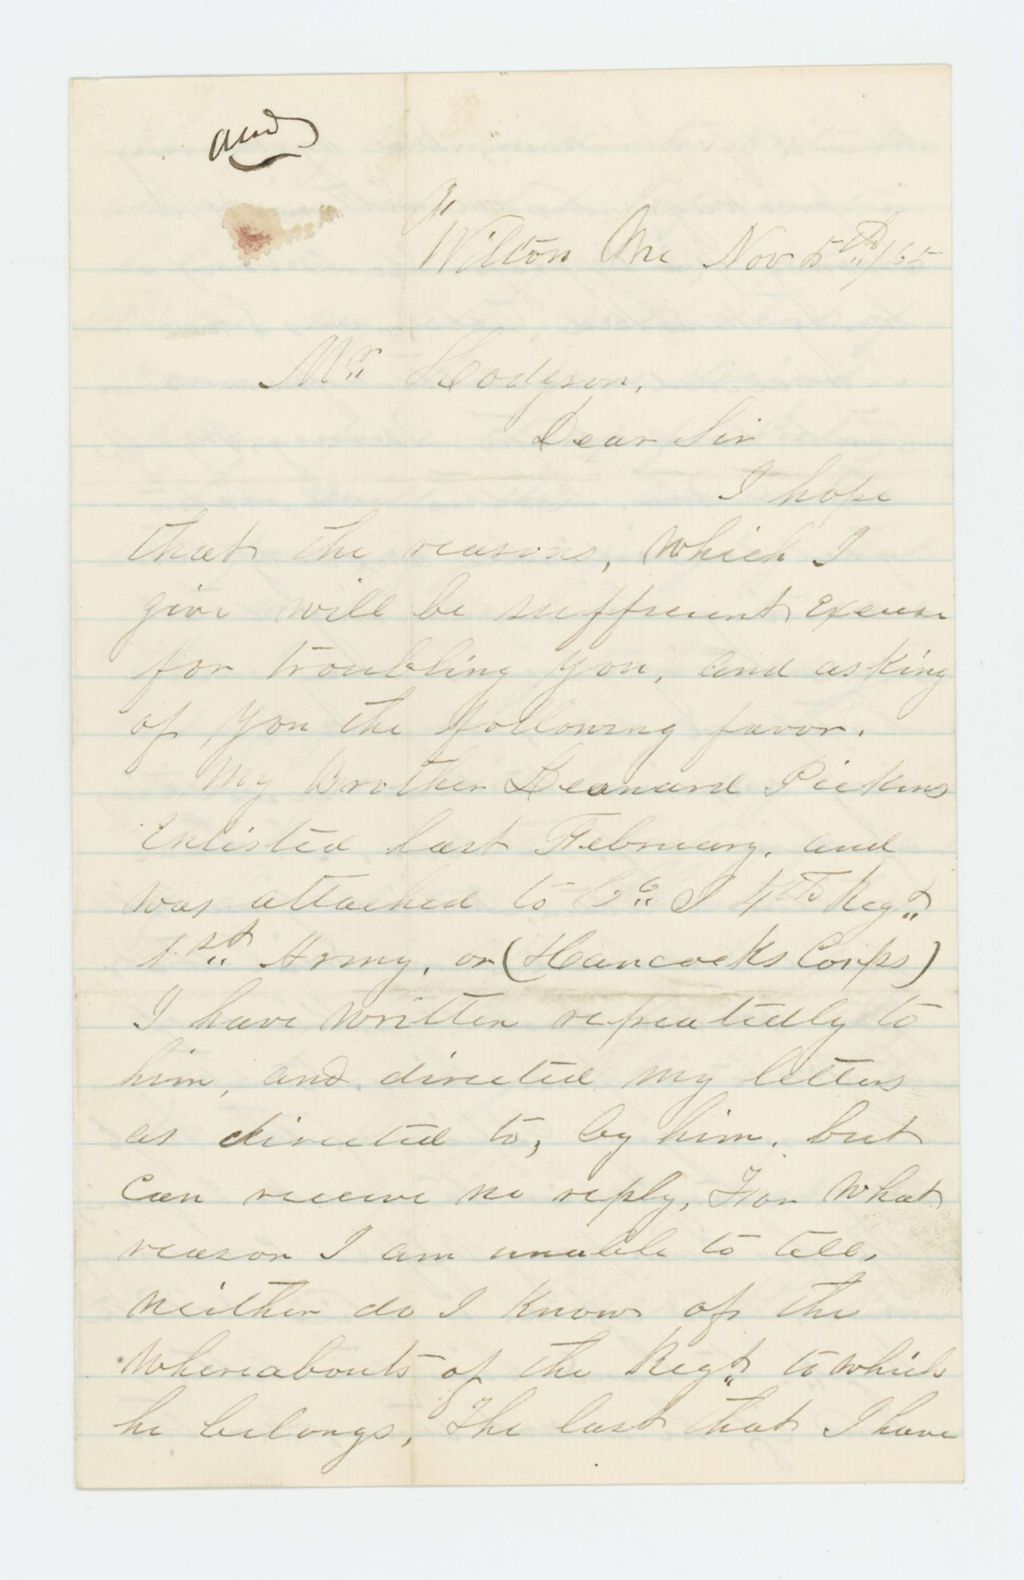 Ansd
Wilton Me Nov 5th/65
Mr Hodgson,
Dear Sir
I hope
that the reasons, which I
give will be suffecient Excuse
for troubling you, and asking
of you the following favor.
My Brother Leonard Pickins
Enlisted last February, and
was attached to Co I 4th Regt
1st Army, or (Hancocks Corps)
I have written repeatedly to
him, and directed my letters
as directed to, by him, but
Can receive no reply, For what
reason I am unable to tell,
neither do I know of the
Whereabouts of the Regt to which
he belongs, The last that I have